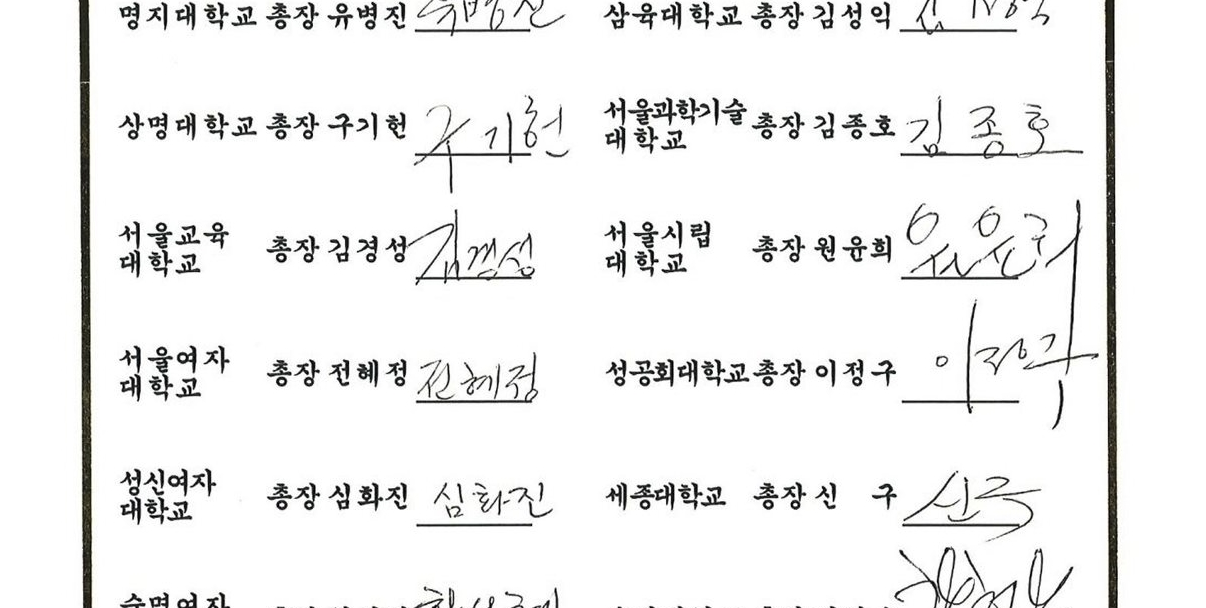 명지대학교 총장 유병진 유병진 삼육대학교 총장 김성익
상명대학교 총장 구기헌 구기헌 서울과학기술
대학교 총장 김종호 김종호
서울교육
대학교 총장 김경성 김경성 서울시립
대학교 총장 원윤희 원윤희
서울여자
대학교 총장 전혜정 전혜정 성공회대학교 총장 이정구 이정구
성신여자
대학교 총장 심화진 심화진 세종대학교 총장 신 구 신구
숙명여자